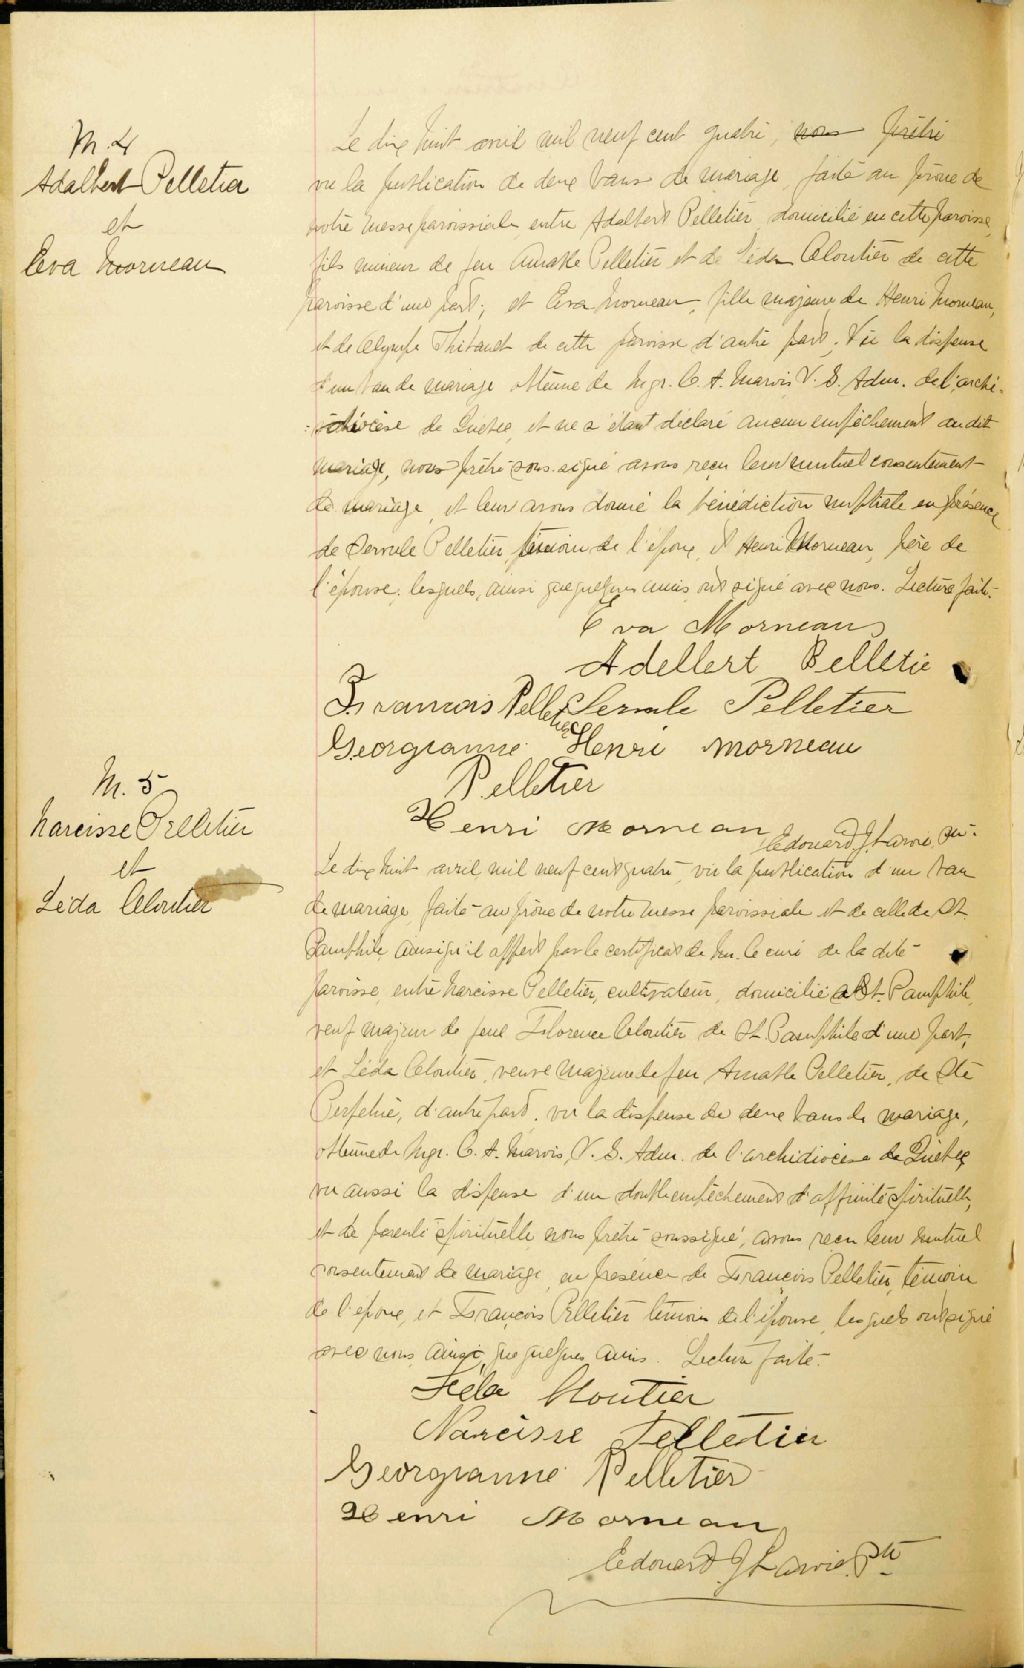 M. 4
Adalbert Pelletier
et
Eva Morneau
Le dix huit avril mil neuf cent quatre, nous prêtre
vu la publication de deux bans de mariage, faite au prône de
notre messe paroissiale, entre Adalbert Pelletier, domicilié en cette paroisse,
fils mineur de feu Amable Pelletier et de Léda Cloutier de cette
paroisse d'une part; et Eva Morneau, fille majeure de Henri Morneau,
et de Olympe Thibault de cette paroisse d'autre part. Vu la dispense
d'un ban de mariage obtenue de Mgr. C. A. Marois V. G. Adm. de l'archi-
diocèse de Québec, et ne s'étant déclaré aucun empêchement au dit
mariage, nous prêtre sous-signé avons reçu leur mutuel consentement
de mariage, et leur avons donné la bénédiction nuptiale en présence
de Pelletier, témoin de l'époux, et Henri Morneau, père de
l'épouse; lesquels, ainsi que quelques amis ont signé avec nous. Lecture faite.
Eva Morneau
Adellert Pelletie
François Pelletier Pelletier
Georgianne Henri Morneau
Pelletier
Henri Morneau
Edouard J. Ptr.
M. 5
Narcisse Pelletier
et
Léda Cloutier
Le dix huit avril mil neuf cent quatre, vu la publication d'un ban
de mariage, faite au prône de notre messe paroissiale et de celle de St.
Pamphile, ainsi qu'il appert par le certificat de M. le curé de la dite
paroisse, entre Narcisse Pelletier, cultivateur, domicilié à St. Pamphile,
veuf majeur de feue Florence Cloutier de St. Pamphile d'une part,
et Léda Cloutier, veuve majeure de feu Amable Pelletier, de Ste
Perpétue, d'autre part; vu la dispense de deux bans de mariage,
obtenue de Mgr. C. A. Marois, V. G. Adm. de l'archidiocèse de Québec,
vu aussi la dispense d'un double empêchement d'affinité spirituelle,
et de parenté spirituelle, nous prêtre soussigné, avons reçu leur mutuel
consentement de mariage, en présence de François Pelletier, témoin
de l'époux, et François Pelletier témoin de l'épouse, lesquels ont signé
avec nous, ainsi que quelques amis. Lecture faite.
Léda Cloutier
Narcisse Pelletier
Georgianne Pelletier
Henri Morneau
Edouard J. Ptr.